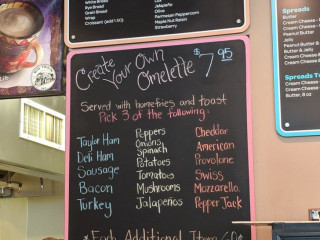 Rye Bread
Grain Bread
Wrap
Croissant (add 1.50)
Jalapeño
Olive
Parmesan Peppercorn
Maple Nut Raisin
Strawberry
Create Your Own Omelette $7.95
Served with homefries and toast
Pick 3 of the following:
Taylor Ham
Deli Ham
Sausage
Bacon
Turkey
Peppers
Onions
Spinach
Potatoes
Tomatoes
Mushrooms
Jalapeños
Cheddar
American
Provolone
Swiss
Mozzarella
Pepper Jack
Each Additional Item 60¢
Spreads
Butter
Cream Cheese
Cream Cheese
Peanut Butter
Jelly
Peanut Butter &
Butter & Jelly
Cream Cheese
Cream Cheese
Spreads T
Cream Cheese
Butter, 8 oz